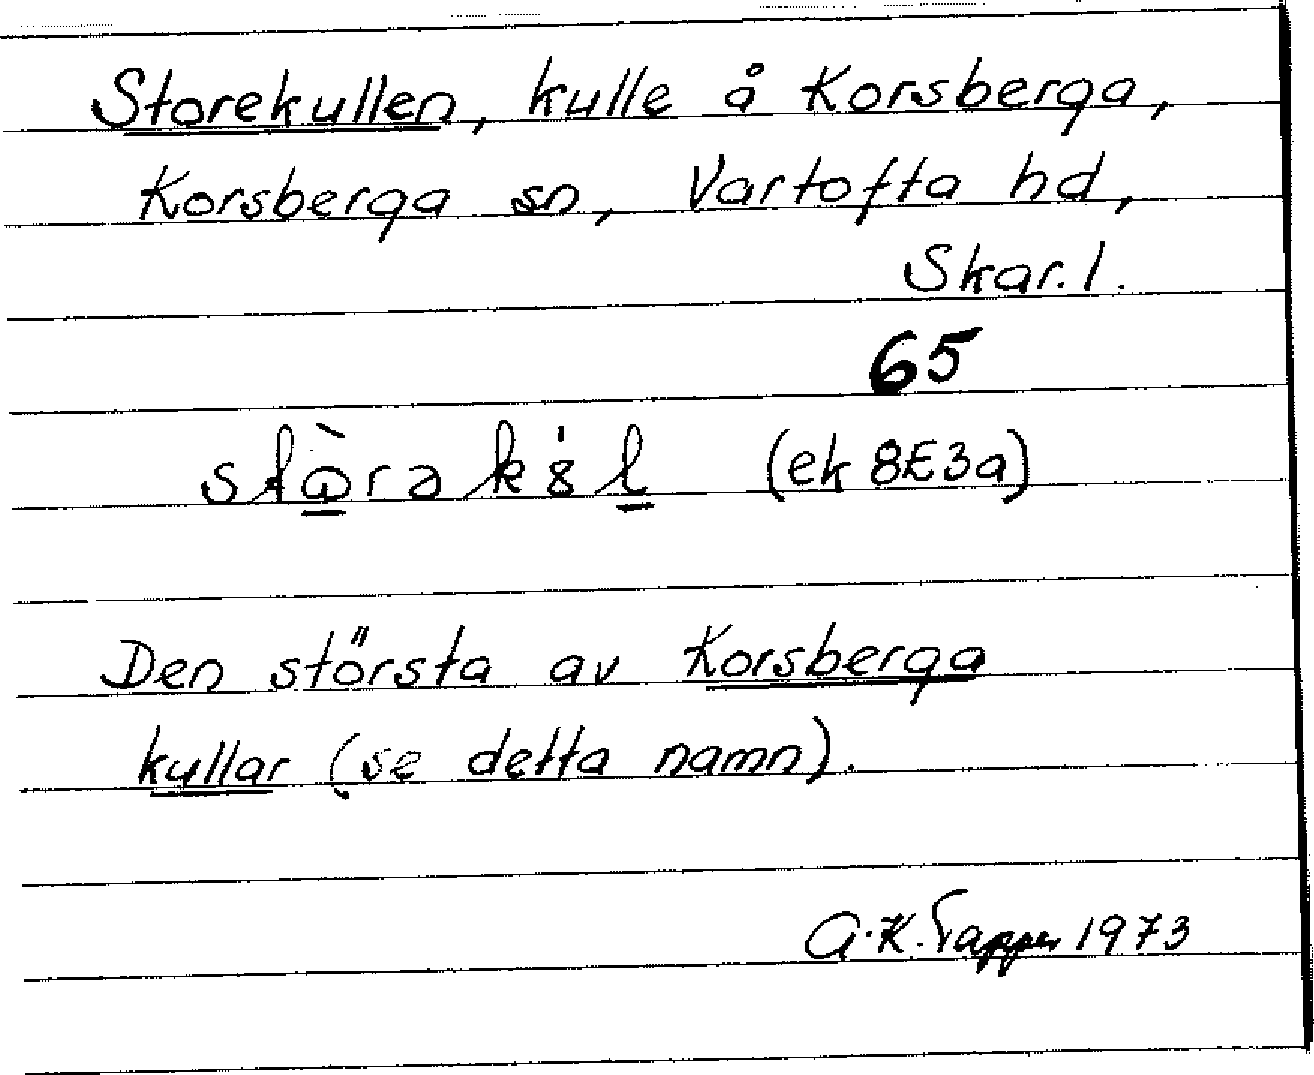 Storekullen, kulle å Korsberga,
Korsberga sn, Vartofta hd,
Skar. l.
65
(ek 8E3a)
Den största av Korsberga
kullar (se detta namn).
A.K. 1973